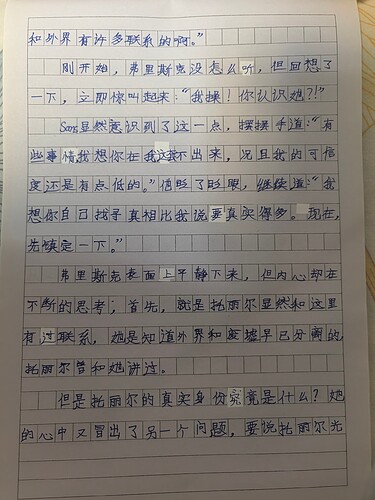 和外界有许多联系的啊。”
刚开始，弗里斯克没怎么听，但回想了
一下，立即惊叫起来：“我操！你认识她？！”
Sans显然意识到了这一点，摆摆手道：“有
些事情我想你在我这找不出来，况且我的可信
度还是有点低的。”他眨了眨眼，继续道：“我
想你自己找寻真相比我说要真实得多。现在，
先镇定一下。”
弗里斯克表面上平静下来，但内心却在
不断的思考；首先，就是托丽尔显然和这里
有过联系，她是知道外界和废墟早已分离的，
托丽尔曾和她讲过。
但是托丽尔的真实身份究竟是什么？她
的心中又冒出了另一个问题，要说托丽尔光